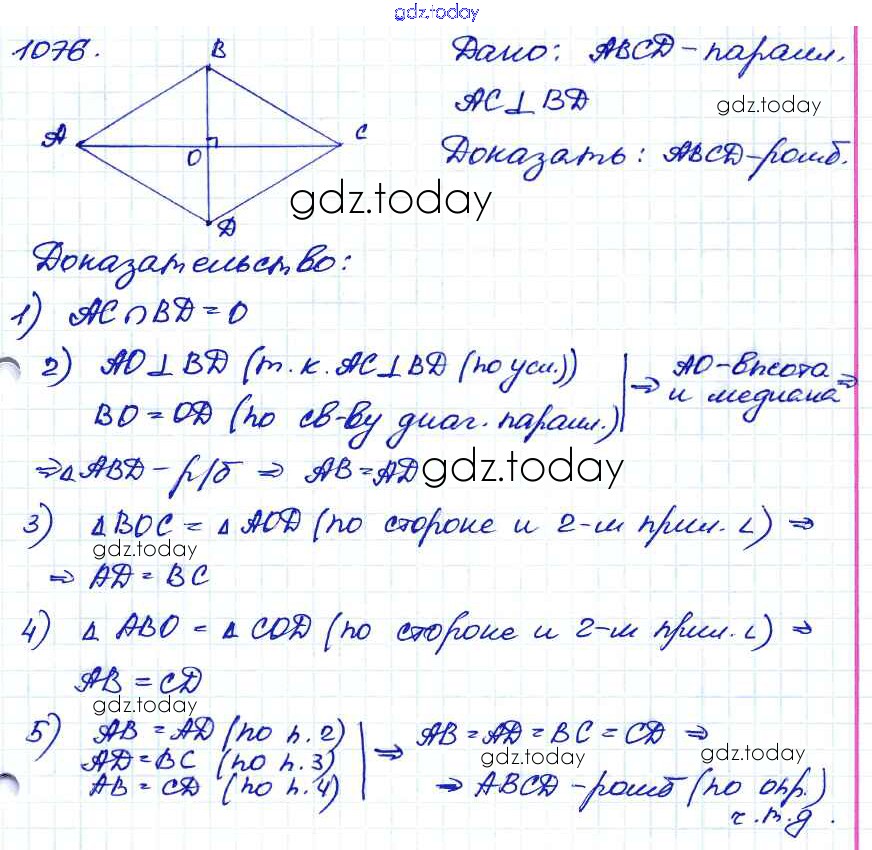 gdz.today
1076.
B
A
C
O
D
Дано: ABCD - паралл.
AC⊥BD
gdz.today
Доказать: ABCD - ромб.
gdz.today
Доказательство:
1) AC∩BD = O
2) AO⊥BD (т.к. AC⊥BD (по усл.)) | ⇒ AO - высота
BO = OD (по св-ву диаг. паралл.) | и медиана ⇒
⇒ △ABD - р/б ⇒ AB = AD gdz.today
3) △BOC = △AOD (по стороне и 2-м прил. ∠) ⇒
gdz.today
⇒ AD = BC
4) △ABO = △COD (по стороне и 2-м прил. ∠) ⇒
AB = CD
gdz.today
5) AB = AD (по п. 2) | ⇒ AB = AD = BC = CD ⇒
AD = BC (по п. 3) gdz.today gdz.today
AB = CD (по п. 4) ⇒ ABCD - ромб (по опр.)
ч.т.д.